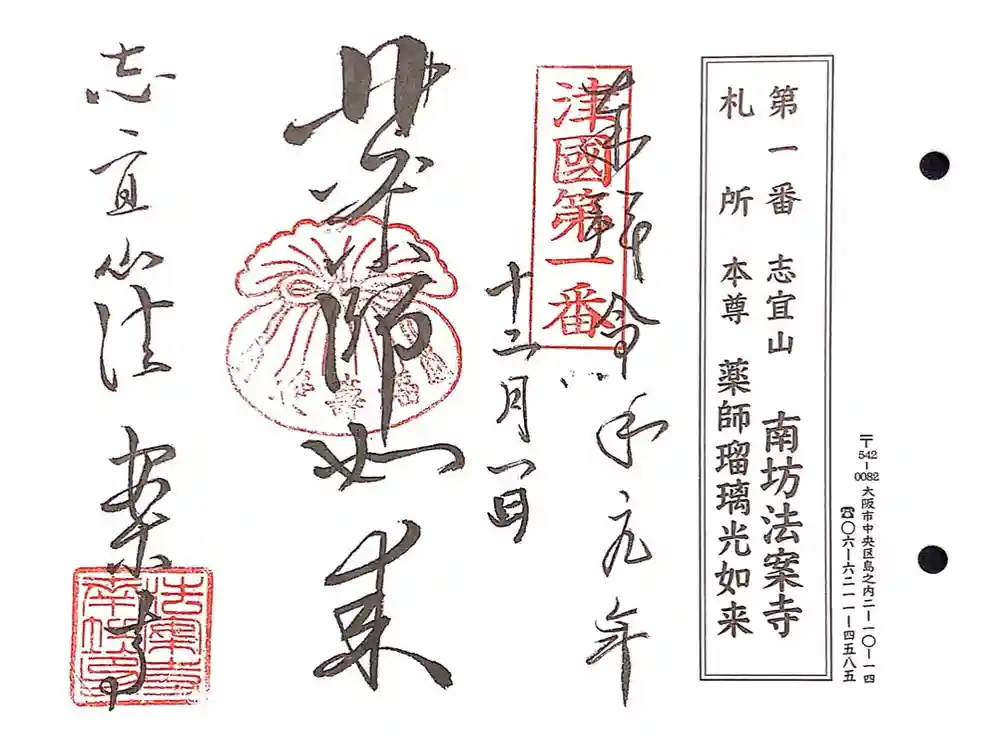 〒542-0082 大阪市中央区島之内二ー一〇ー一四
☎〇六ー六二一一ー四五八五
第一番 志宜山 南坊法案寺
札所 本尊 薬師瑠璃光如来
奉拝 令和元年
津國第一番
十二月一日
薬師如来
志宜山法案寺